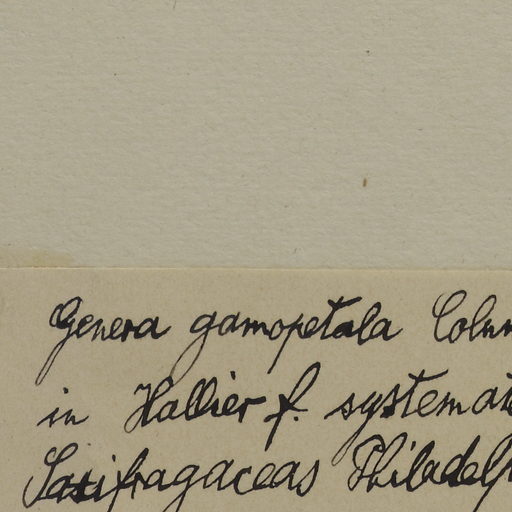 Genera gamopetala Colum
in Hallier f. systemat
Saxifragaceas Philadelp